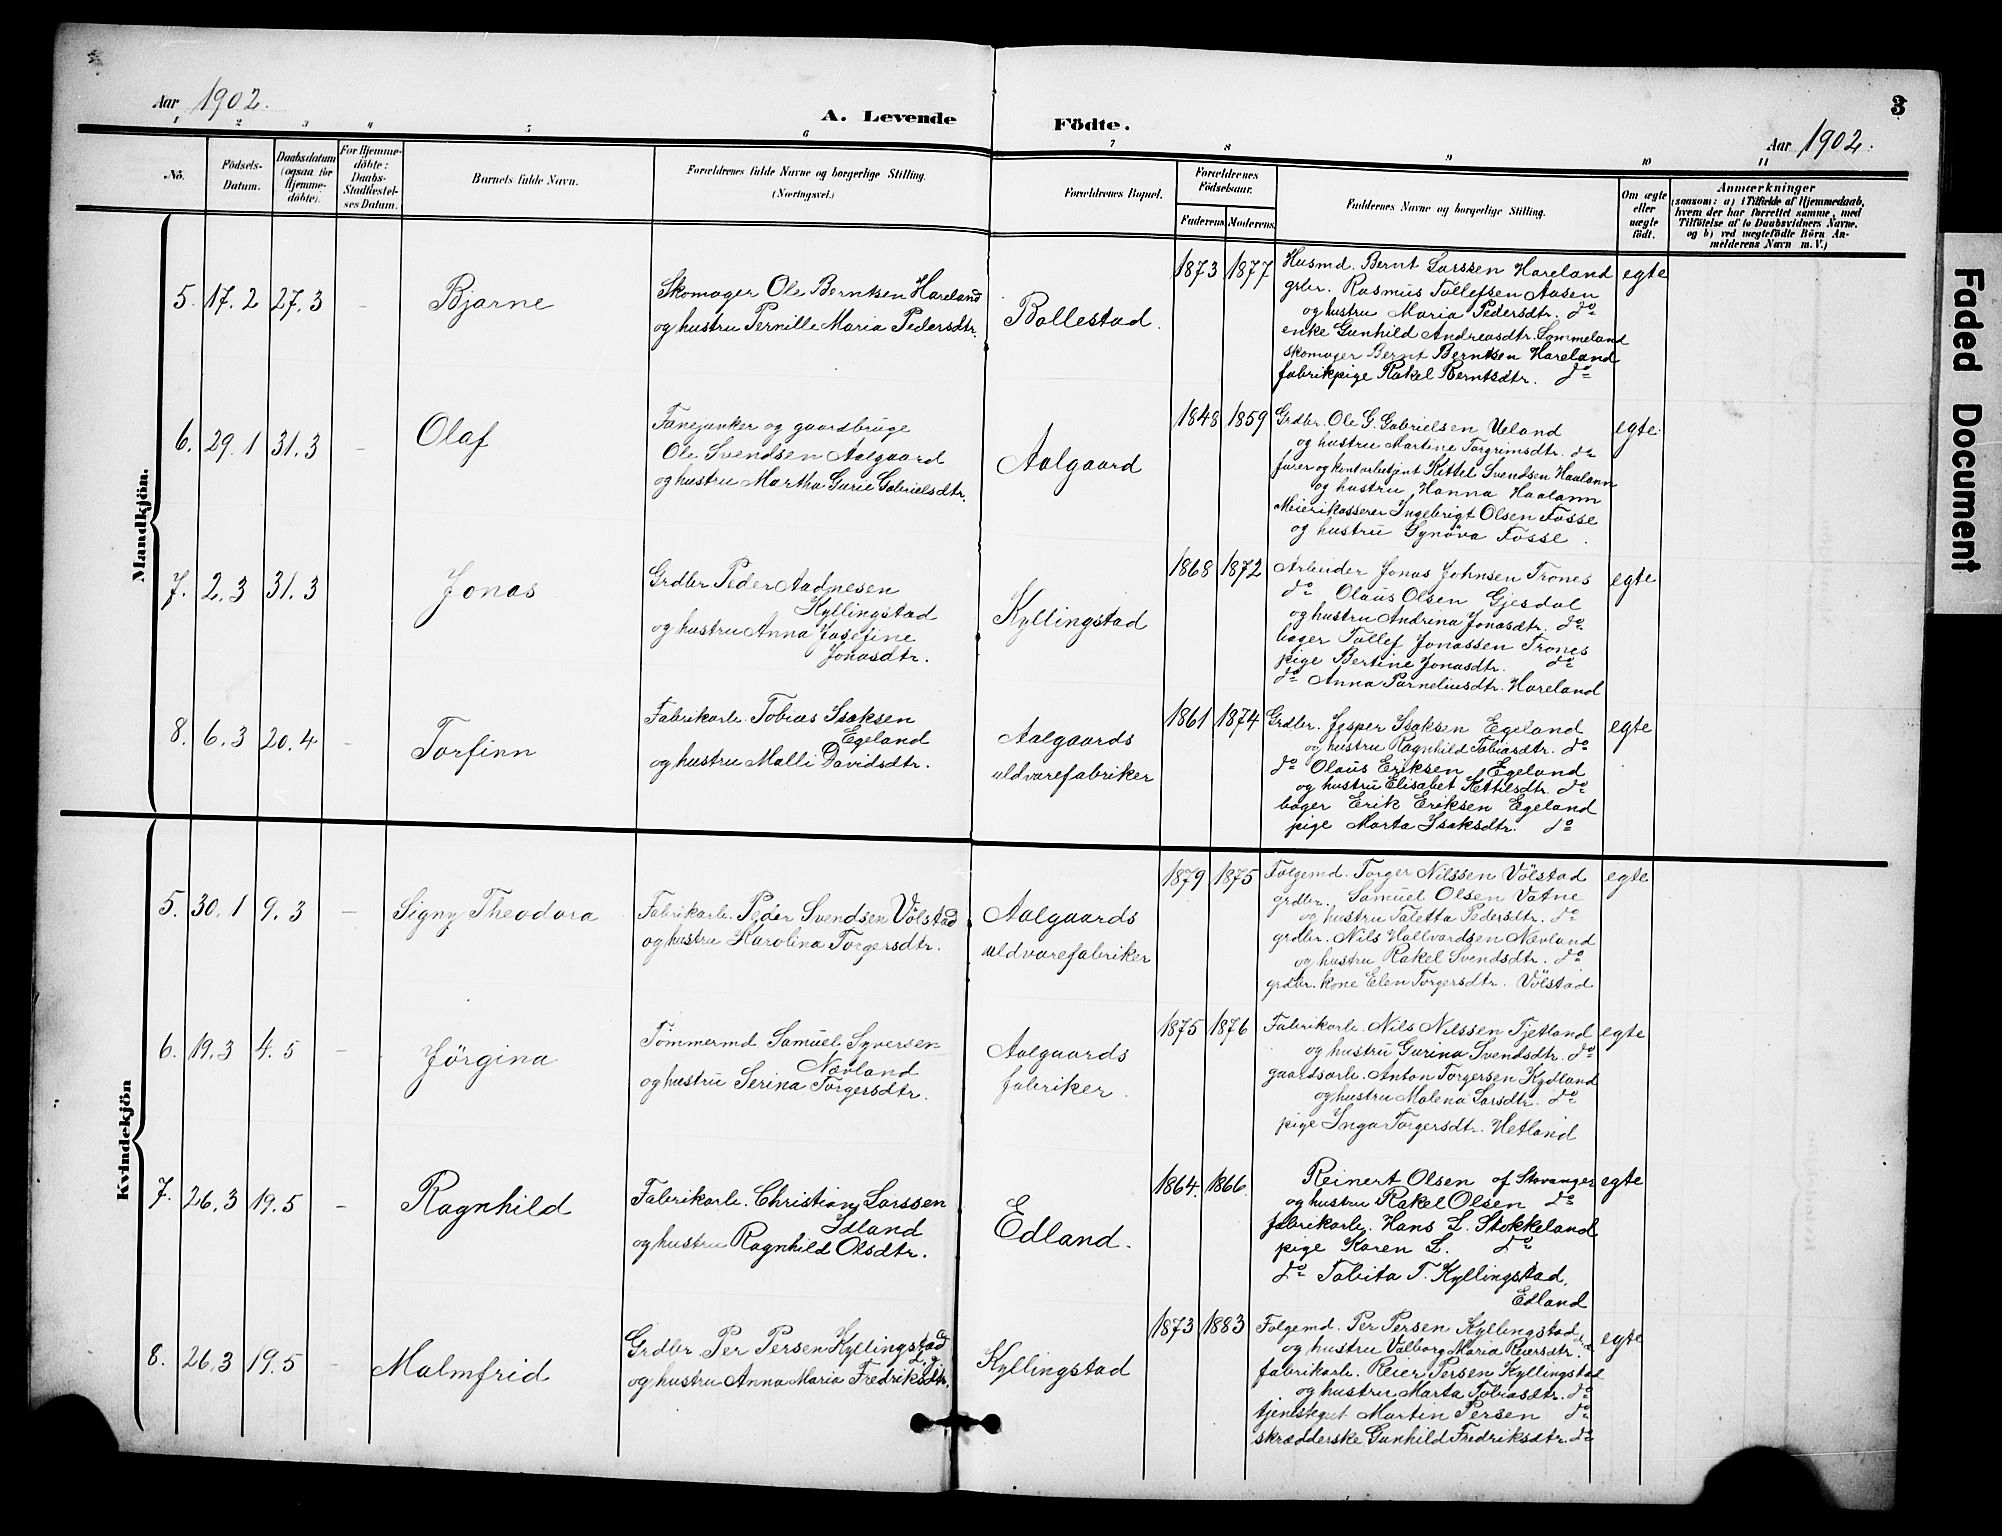 Aar 1902.
A. Levende Födte.
3
Aar 1902.
1 2 3 4 5 6 7 8 9 10 11
No.
Födsels-Datum.
Daabsdatum (ogsaa for Hjemme-döbte).
For Hjemme-döbte: Daabs-Stadfæstel-ses Datum.
Barnets fulde Navn.
Forældrenes fulde Navne og borgerlige Stilling.
(Næringsvei.)
Forældrenes Bopæl.
Forældrenes Födselsaar.
Faderens Moderens
Faddernes Navne og borgerlige Stilling.
Om ægte eller uægte födt.
Anmærkninger
(saasom: a) i Tilfælde af Hjemmedaab,
hvem der har forrettet samme, med
Tilföielse af to Daabsvidners Navne.
og b) ved uægtefödte Börn An-
melderens Navn m. V.)
Mandkjön.
5. 17.2 27.3 – Bjarne
Skomager Ole Berntsen Hareland
og hustru Pernille Maria Pedersdtr.
Bollestad.
1873 1877
Husmd. Bernt Larssen Hareland
grbr. Rasmus Tollefsen Aasen
og hustru Maria Pedersdtr. do
enke Gunhild Andreasdtr. Sommeland
skomager Bernt Berntsen Hareland
fabrikpige Rakel Berntsdtr. do
egte
6. 29.1 31.3 – Olaf
Fanejunker og gaardbruge
Ole Svendsen Aalgaard
og hustru Martha Gurie Gabrielsdtr.
Aalgaard
1848 1859
Grdbr. Ole G. Gabrielsen Ueland
og hustru Martine Torgrimsdtr. do
furer og kontorbetjent Kittel Svendsen Haaland
og hustru Hanna Haaland
Meierikasserer Ingebrigt Olsen Fosse
og hustru Synöva Fosse.
egte.
7. 2.3 31.3 Jonas
Grdbr Peder Aadnesen
Kyllingstad
og hustru Anna Josefine
Jonasdtr.
Kyllingstad
1868 1872
Arbeider Jonas Johnsen Trones
do Olaus Olsen Gjesdal
og hustru Andrina Jonasdtr. do
bager Tollef Jonassen Trones
pige Bertine Jonasdtr. do
do Anna Parneliusdtr. Hareland
egte
8. 6.3 20.4 – Torfinn
Fabrikarb. Tobias Isaksen
Egeland
og hustru Malli Davidsdtr.
Aalgaards
uldvarefabriker
1861 1874
Grdbr. Jesper Isaksen Egeland
og hustru Ragnhild Tobiasdtr. do
do Olaus Eriksen Egeland
og hustru Elisabet Kittilsdtr. do
bager Erik Eriksen Egeland
pige Marta Isaksdtr. do
egte
Kvindekjön
5. 30.1 9.3 – Signy Theodora
Fabrikarb. Peder Svendsen Völstad
og hustru Karolina Torgersdtr.
Aalgaards
uldvarefabriker
1879 1875
Folgemd. Torger Nilssen Völstad
grdbr. Samuel Olsen Vatne
og hustru Taletta Pedersdtr. do
grdbr. Nils Hallvardsen Nævland
og hustru Rakel Svendsdtr. do
grdbr. kone Elen Torgersdtr. Völstad
egte
6. 19.3 4.5 – Jörgina
Tömmermd. Samuel Syversen
Nævland
og hustru Serina Torgersdtr.
Aalgaards
fabriker.
1875 1876
Fabrikarb. Nils Nilssen Tjetland
og hustru Gurina Svendsdtr. do
gaardsarb. Anton Torgersen Kydland
og hustru Malena Larsdtr. do
pige Inga Torgersdtr. Hetland
egte
7. 26.3 19.5 – Ragnhild
Fabrikarb. Christian Larssen
Idland
og hustru Ragnhild Olsdtr.
Edland.
1864. 1866.
Reinert Olsen af Stavanger
og hustru Rakel Olsen do
fabrikarb. Hans L. Stokkeland
pige Karen L. do
do Tabita T. Kyllingstad,
Edland
egte
8. 26.3 19.5 – Malmfrid
Grdbr. Per Persen Kyllingstad
og hustru Anna Maria Fredriksdtr.
Kyllingstad
1873 1883
Folgemd. Per Persen Kyllingstad
og hustru Valborg Maria Reiersdtr. do
fabrikarb. Reier Persen Kyllingstad
og hustru Marta Tobiasdtr. do
tjenstegut Martin Persen do
skrædderske Gunhild Fredriksdtr. do
egte
Faded Document